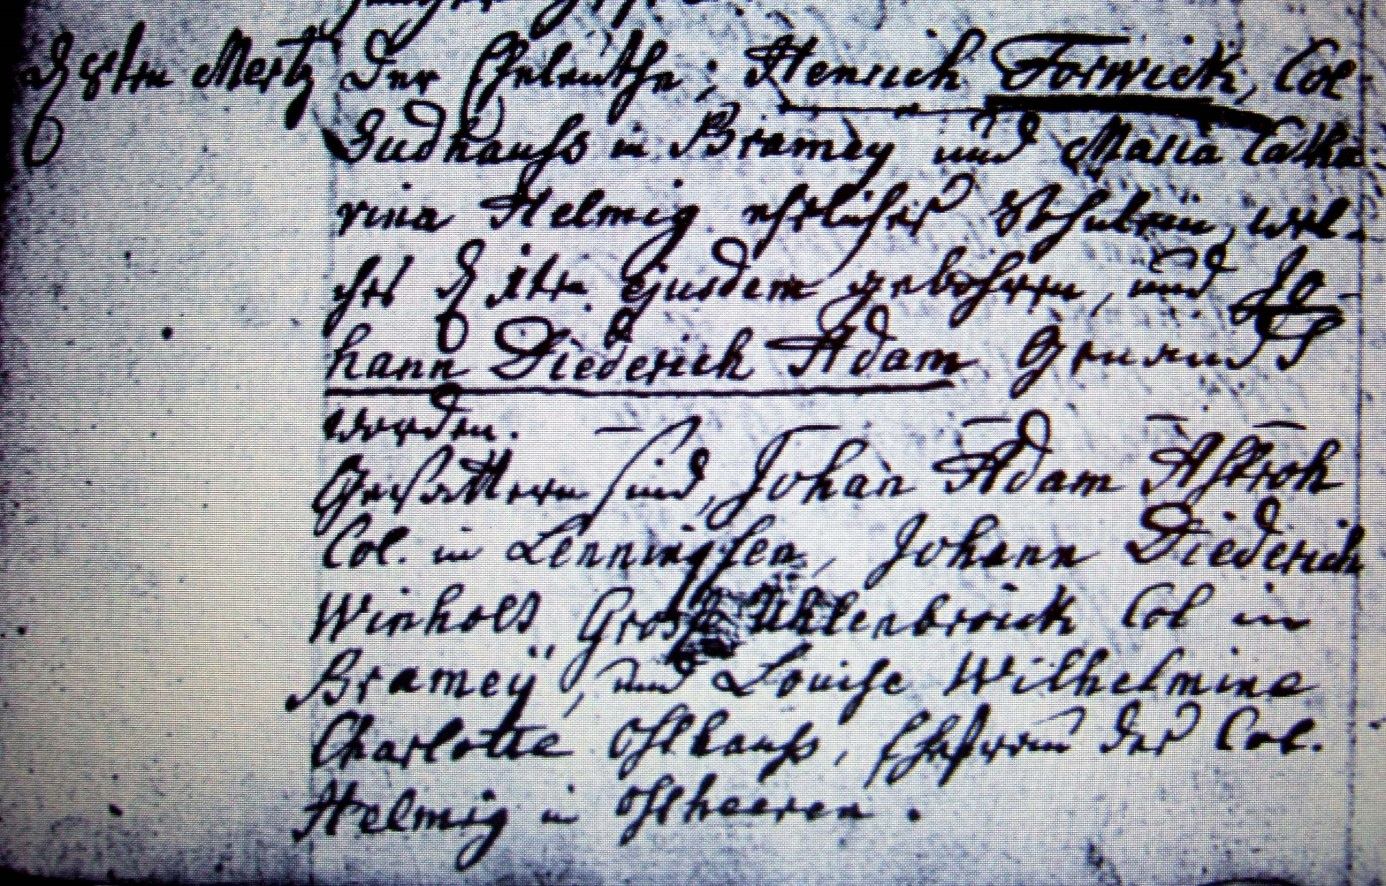 d 8ten Mertz Der Eheleuthe, Henrich Forwick, Col.
Sudhauß in Bramey und Maria Catha-
rina Helmig ehelicher Sohn, wel-
ches d 1ten ejusdem gebohren, und Jo-
hann Diederich Adam genandt
worden.
Gevattern sind, Johan Adam Astroh
Col. in Lenningsen, Johann Diederich
Winholt, Groß Uhlenbrock Col in
Bramey, und Louise Wilhelmine
Charlotte Osthauß, Ehefrau des Col.
Helmig in Ostheeren.